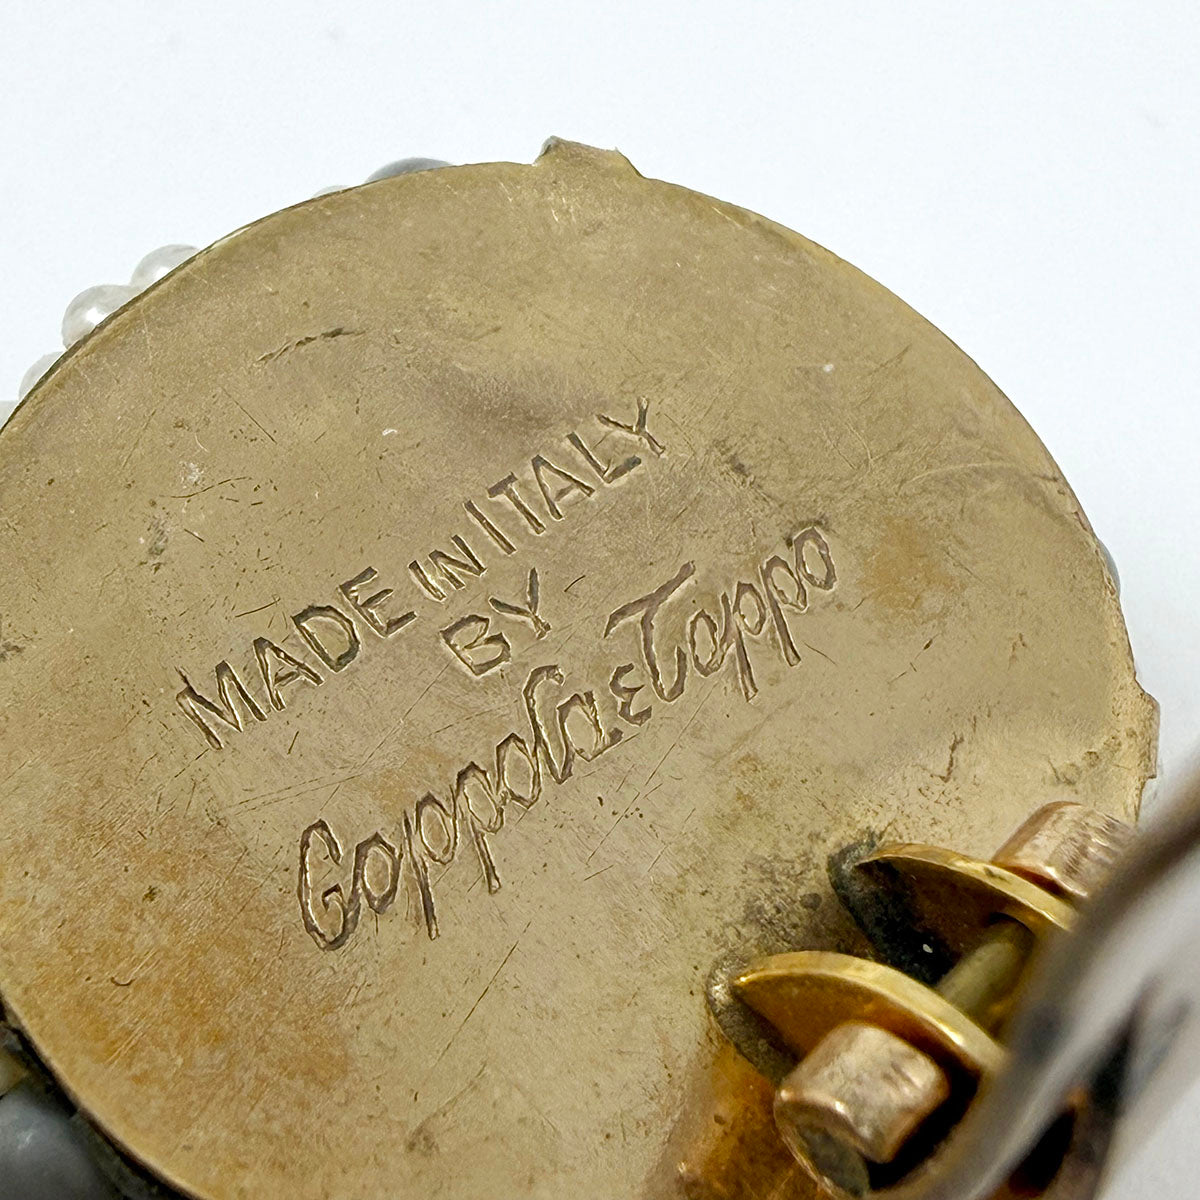 MADE IN ITALY
BY
Coppola e Toppo